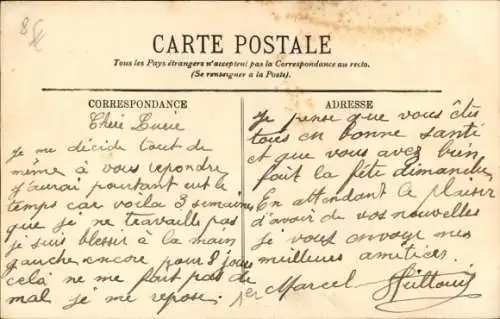 CARTE POSTALE
Tous les Pays étrangers n'acceptent pas la Correspondance au recto.
(Se renseigner a la Poste).
CORRESPONDANCE
Chère Lucie
Je me décide tout de
même à vous repondre
j'aurai pourtant eut le
temps car voila 3 semaines
que je ne travaille pas
je suis blesser à la main
gauche encore pour 8 jours
celà ne me fait pas de
mal je me repose.
ADRESSE
Je pense que vous êtes
tous en bonne santé
et que vous avez bien
fait la fête dimanche,
En attendant le plaisir
d'avoir de vos nouvelles
je vous envoye mes
meilleures amitiées.
Marcel